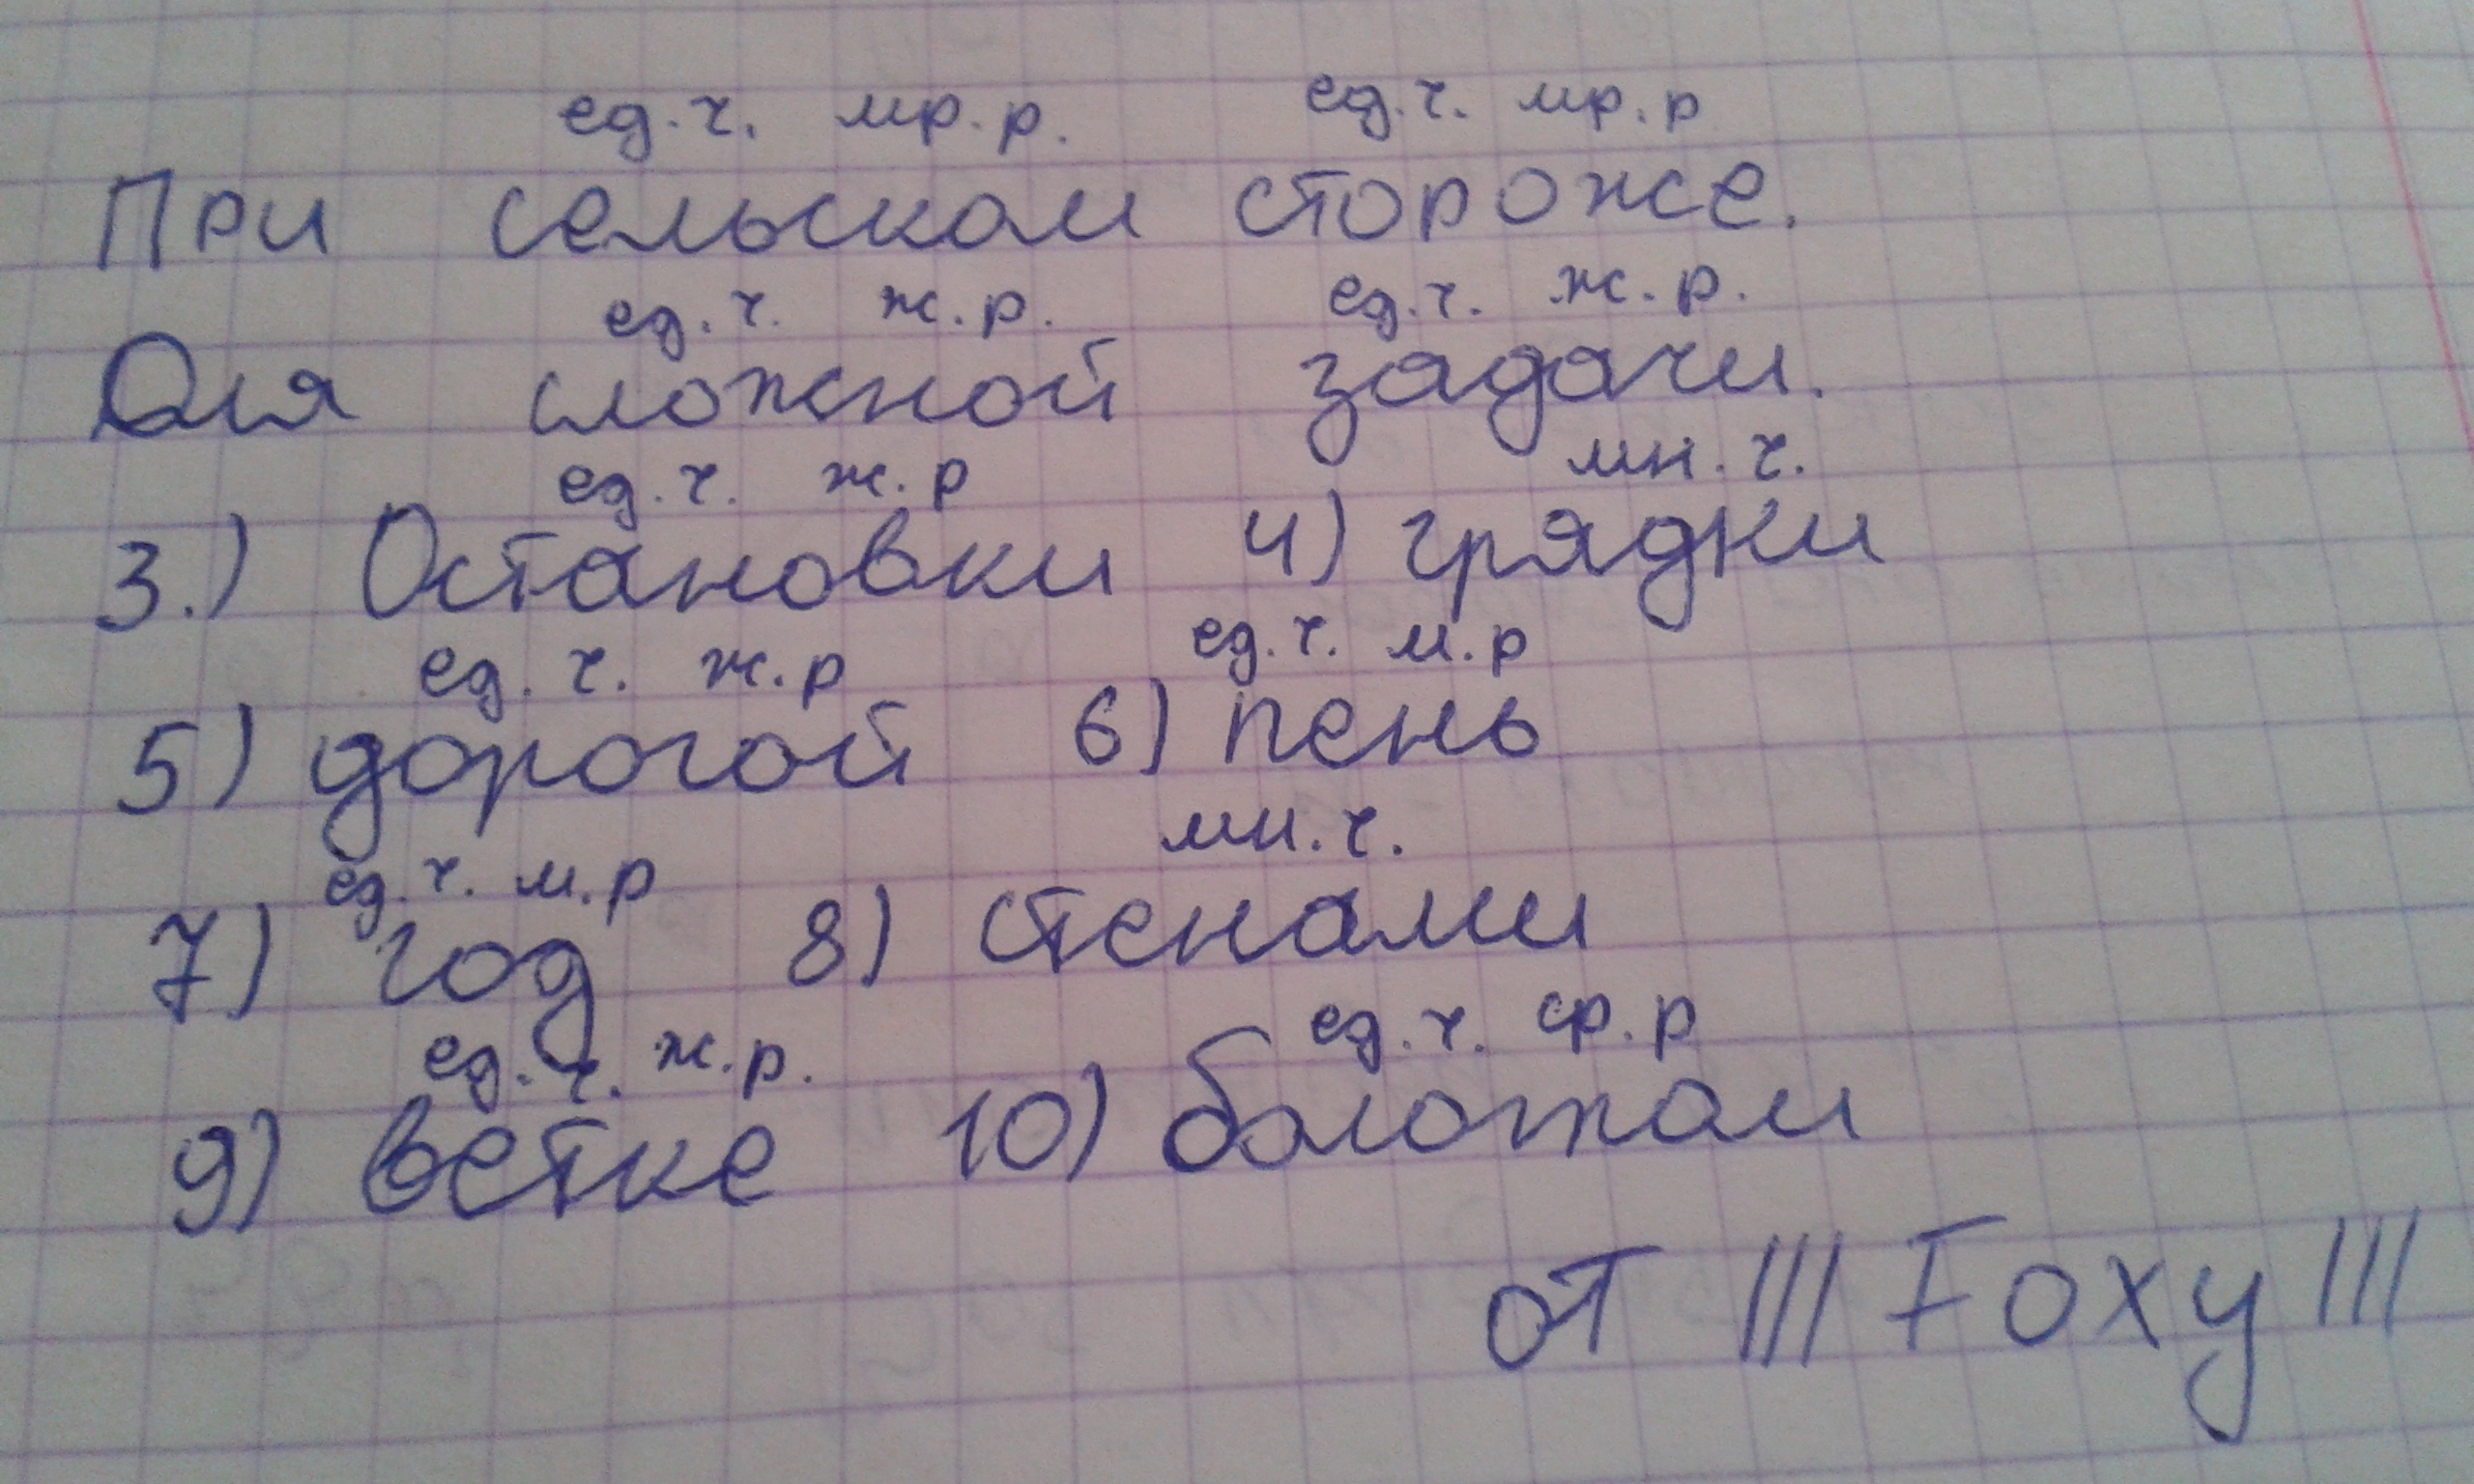 ед.ч. мр.р. ед.ч. мр.р
При сельском стороже.
ед.ч. ж.р. ед.ч. ж.р.
Для сложной задачи.
ед.ч. ж.р мн.ч.
3.) Остановки 4) грядки
ед.ч. ж.р ед.ч. м.р
5) дорогой 6) пень
ед.ч. м.р мн.ч.
7) год 8) стенами
ед.ч. ж.р. ед.ч. ср.р
9) ветке 10) болотом
от ||| Foxy |||